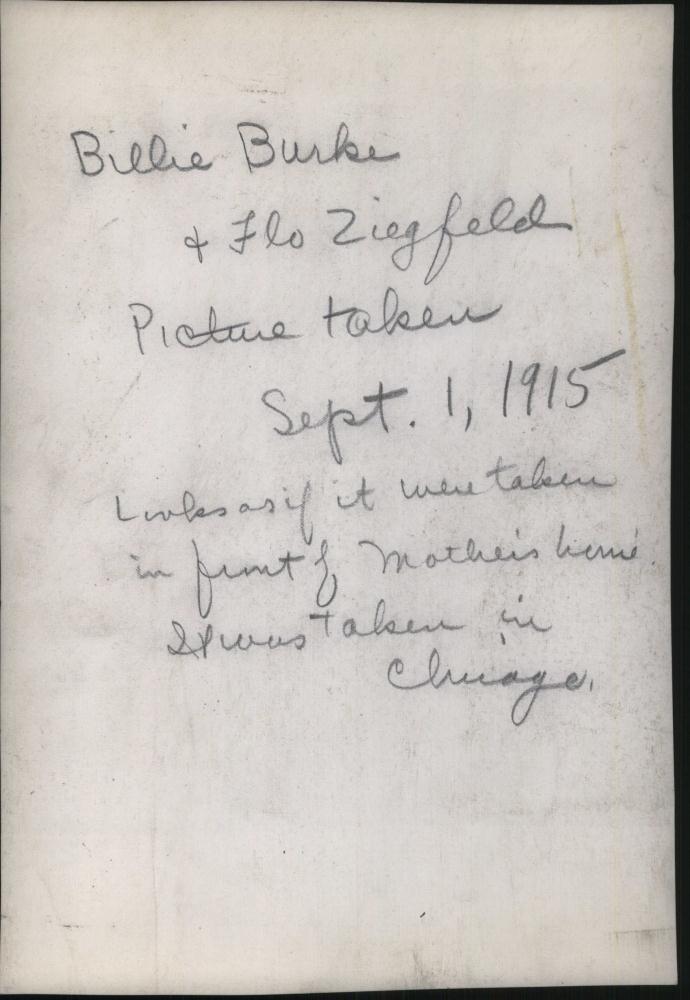 Billie Burke
& Flo Ziegfeld
Picture taken
Sept. 1, 1915
Looks as if it were taken
in front of Mother's home
It was taken in
Chicago.